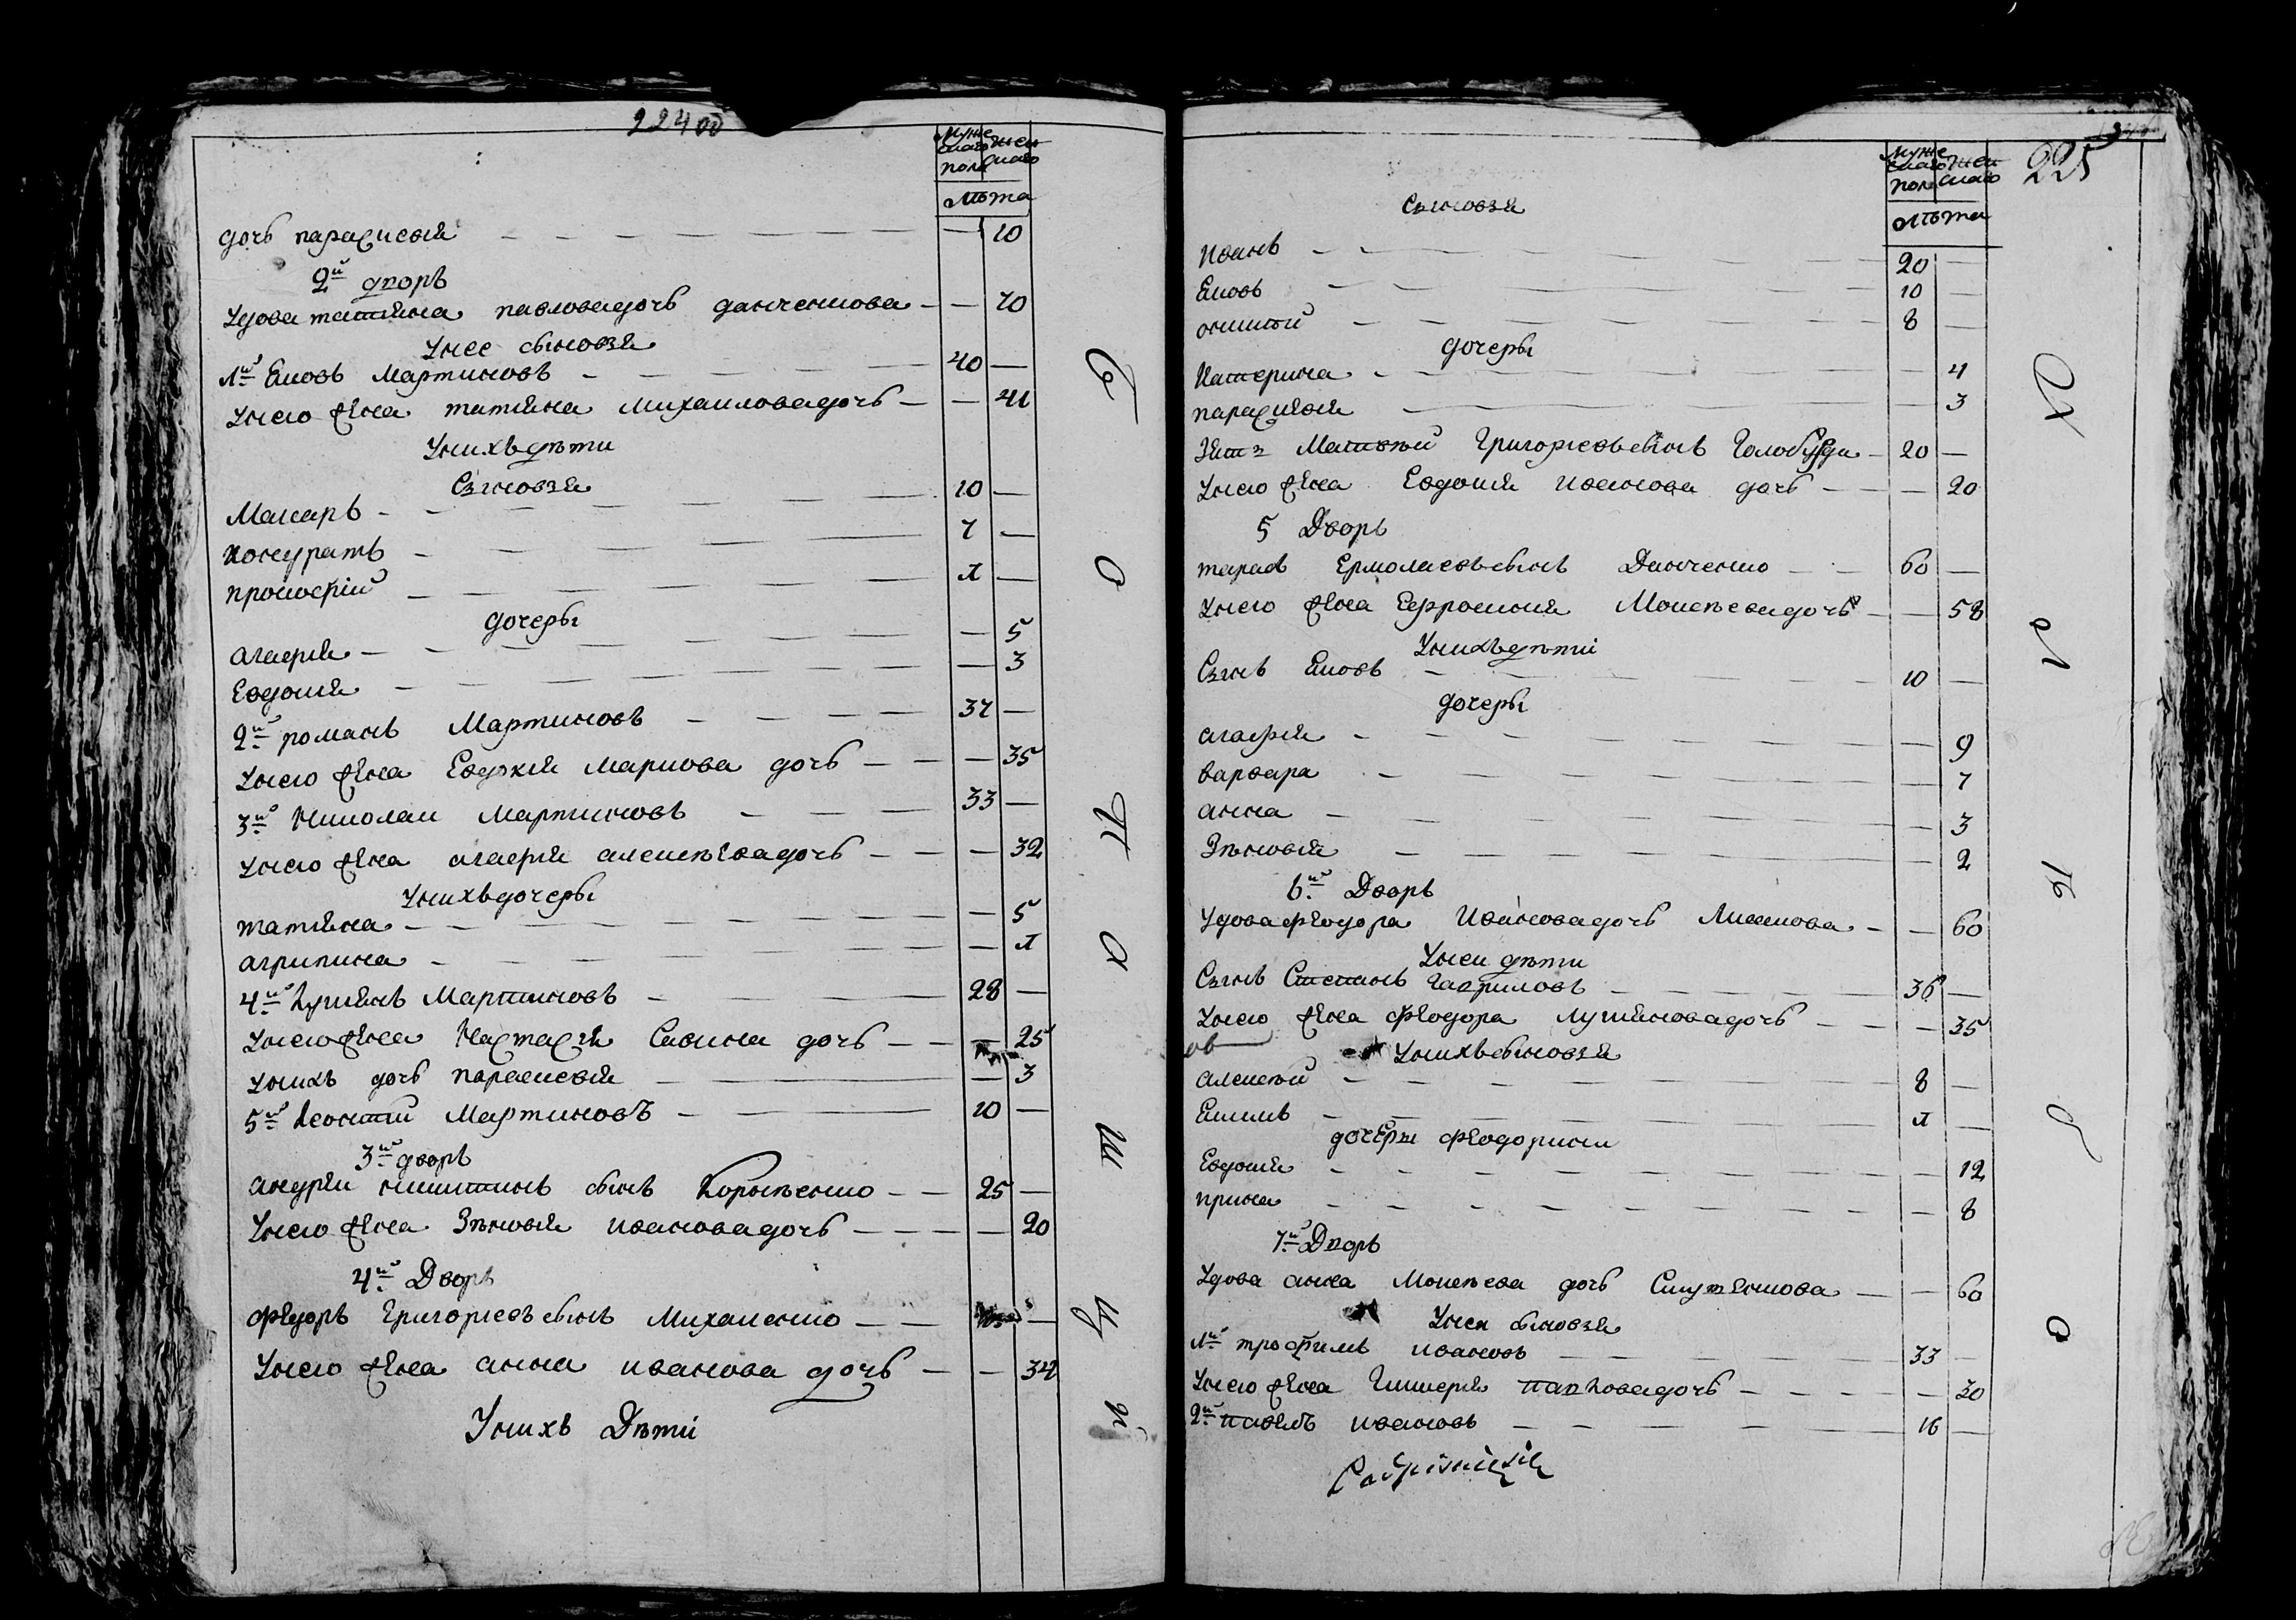 224 об
Муже
скаго жен
пола скаго
Лѣта
дочь параскевья — 10
2й дворъ
Удова татияна павловадочь данченкова — 70
Унее синовья
1й Яковъ Мартиновъ 40 —
Унего жена татияна Михаиловадочь — 41
Унихъдѣти
Сыновья
Макаръ 10 —
кондратъ 7 —
прокофій 1 —
дочеры
агафия — 5
Евдокия — 3
2й романъ Мартиновъ 37 —
Унего жена Евдокия Маркова дочь — 35
3й Николаи Мартиновъ 33 —
Унего жена агафия алексѣевадочь — 32
Унихъдочеры
татияна — 5
агрипина — 1
4й Лукиянъ Мартиновъ 28 —
Унегожена Настасия Савина дочь — 25
Унихъ дочь параскевия — 3
5й Леонтии Мартиновъ 20 —
3й дворъ
андреи никитинъ синъ Корнѣенко 25 —
Унего жена Зѣновия ивановадочь — 20
4й Дворъ
Феодоръ Григориевъ синъ Михаиенко —
Унего жена анна иванова дочь — 34
Унихъ Дѣти
225
Муже
скаго жен
пола скаго
Лѣта
Сыновья
Иванъ 20 —
Яковъ 10 —
никитаи 8 —
дочеры
Катерина — 4
параскевия — 3
Зять Матвѣй Григориевъсинъ 20 —
Унего жена Евдокия иванова дочь — 20
5 Дворъ
тарасъ Ермолаевъсинъ Данченко 60 —
Унего жена Евфросиния Моисѣевадочь — 58
Унихъдѣти
Сынъ Яковъ 10 —
дочеры
агафия — 9
варвара — 7
анна — 3
Зѣновия — 2
6й Дворъ
Удова феодора Ивановадочь — 60
Унеи дѣти
Сынъ Степанъ Гавриловъ 36 —
Унего жена феодора лукияновадочь — 35
Унихъсиновья
алексѣй 8 —
Екимъ 1 —
дочеры феодорини
Евдокия — 12
ирина — 8
7й Дворъ
Удова анна Моисѣева дочь — 60
Унеи синовья
1й трофимъ ивановъ 33 —
Унего жена Гликерия павловадочь — 30
2й павелъ ивановъ 16 —